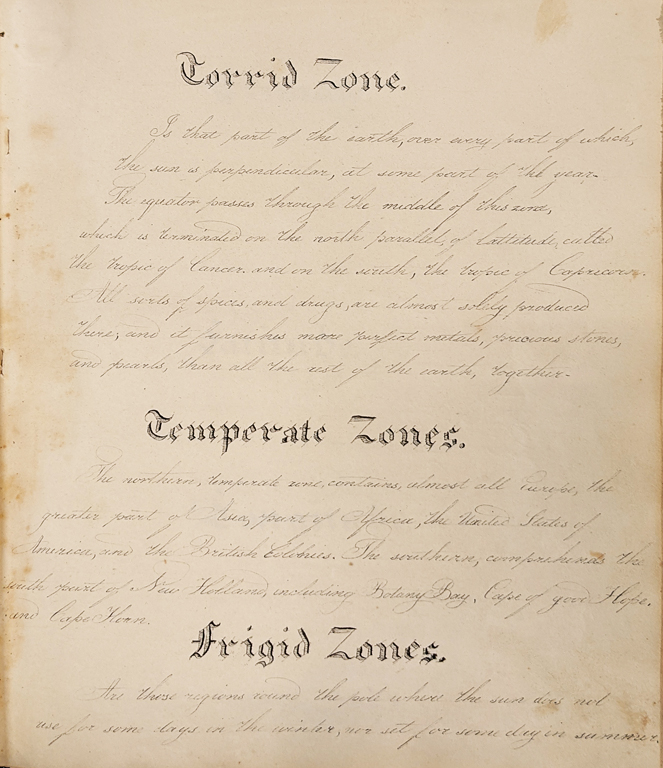 Torrid Zone.
Is that part of the earth, over every part of which,
the sun is perpendicular, at some part of the year.
The equator passes through the middle of this zone,
which is terminated on the north parallel, of lattitude, called
the tropic of Cancer. and on the south, the tropic of Capricorn.
All sorts of spices, and drugs, are almost solely produced
there, and it furnishes more perfect metals, precious stones,
and pearls, than all the rest of the earth, together.
Temperate Zones.
The northern, temperate zone, contains, almost all Europe, the
greater part of Asia, part of Africa, the United States of
America, and the British Colonies. The southern, comprehends the
south part of New Holland, including Botany Bay, Cape of good Hope.
and Cape Horn.
Frigid Zones.
Are those regions round the pole where the sun does not
rise for some days in the winter, nor set for some day in summer.